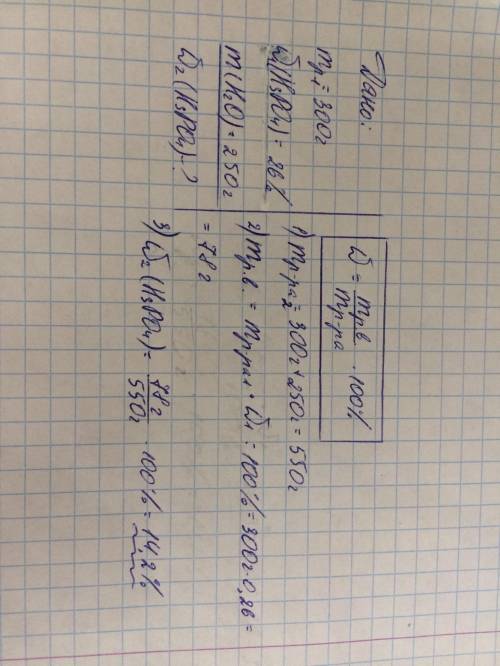 Дано:
mр₁ = 300г
ω₁(H₃PO₄) = 26%
m(H₂O) = 250г
ω₂(H₃PO₄) - ?
ω = mрв / mр-ра · 100%
1) mр-ра₂ = 300г + 250г = 550г
2) mр.в. = mр-ра₁ · ω₁ : 100% = 300г · 0,26 =
= 78г
3) ω₂(H₃PO₄) = 78г / 550г · 100% = 14,2%